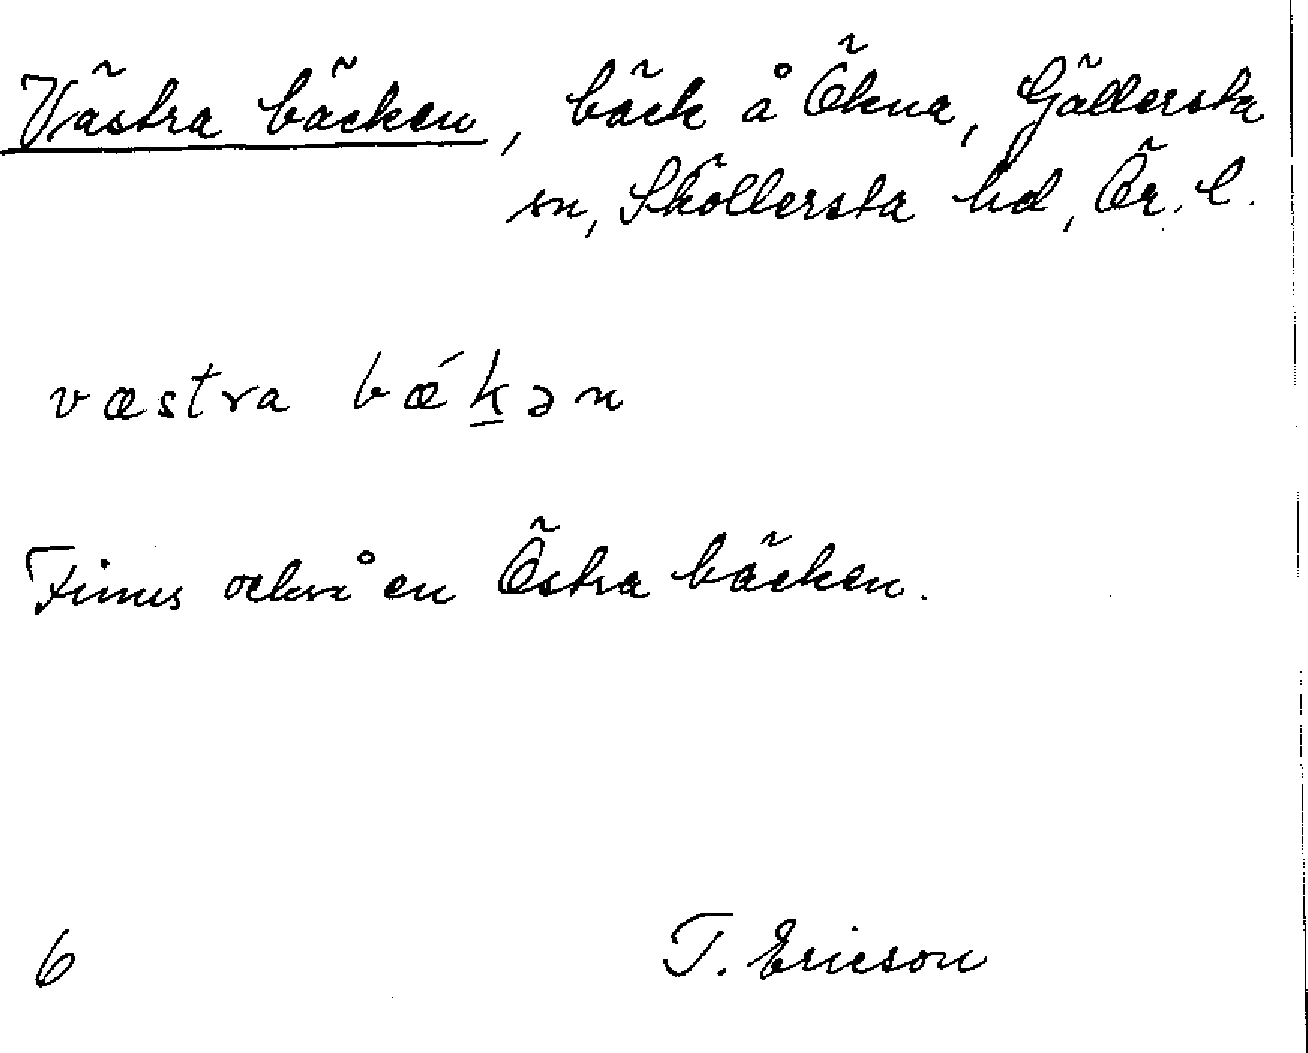 Västra bäcken, bäck å Ökna, Gällersta
sn, Sköllersta hd, Ör. l.
væstra bǽk̲ən
Finns också en Östra bäcken.
6 T. Ericson